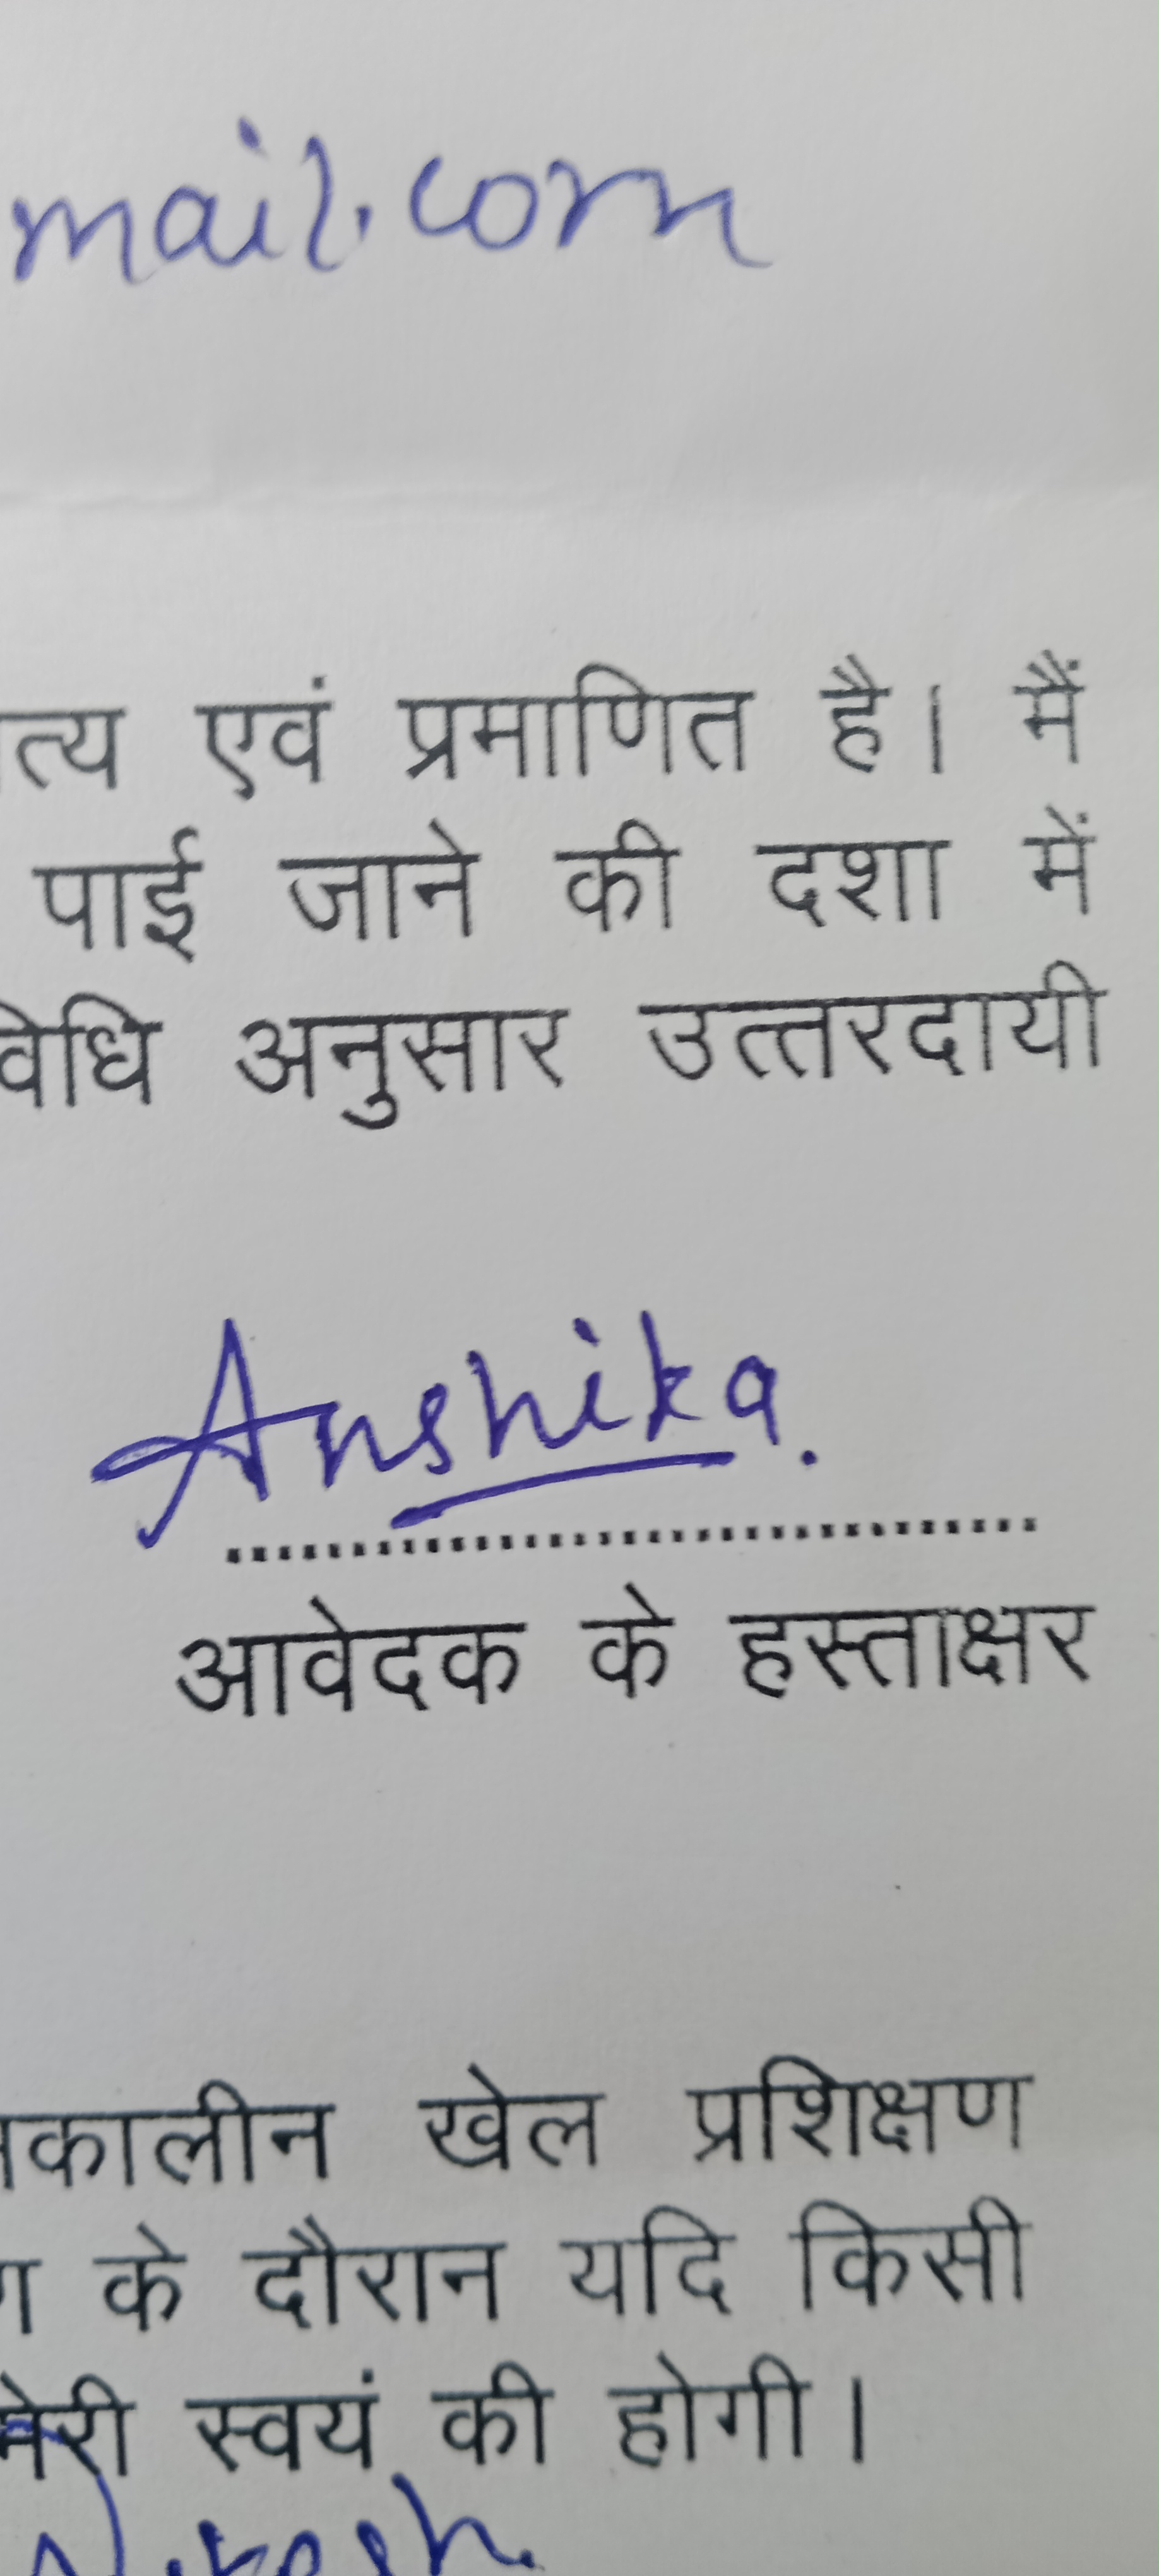 mail.com
त्य एवं प्रमाणित है। मैं
पाई जाने की दशा में
विधि अनुसार उत्तरदायी
Anshika.
आवेदक के हस्ताक्षर
कालीन खेल प्रशिक्षण
के दौरान यदि किसी
मेरी स्वयं की होगी।